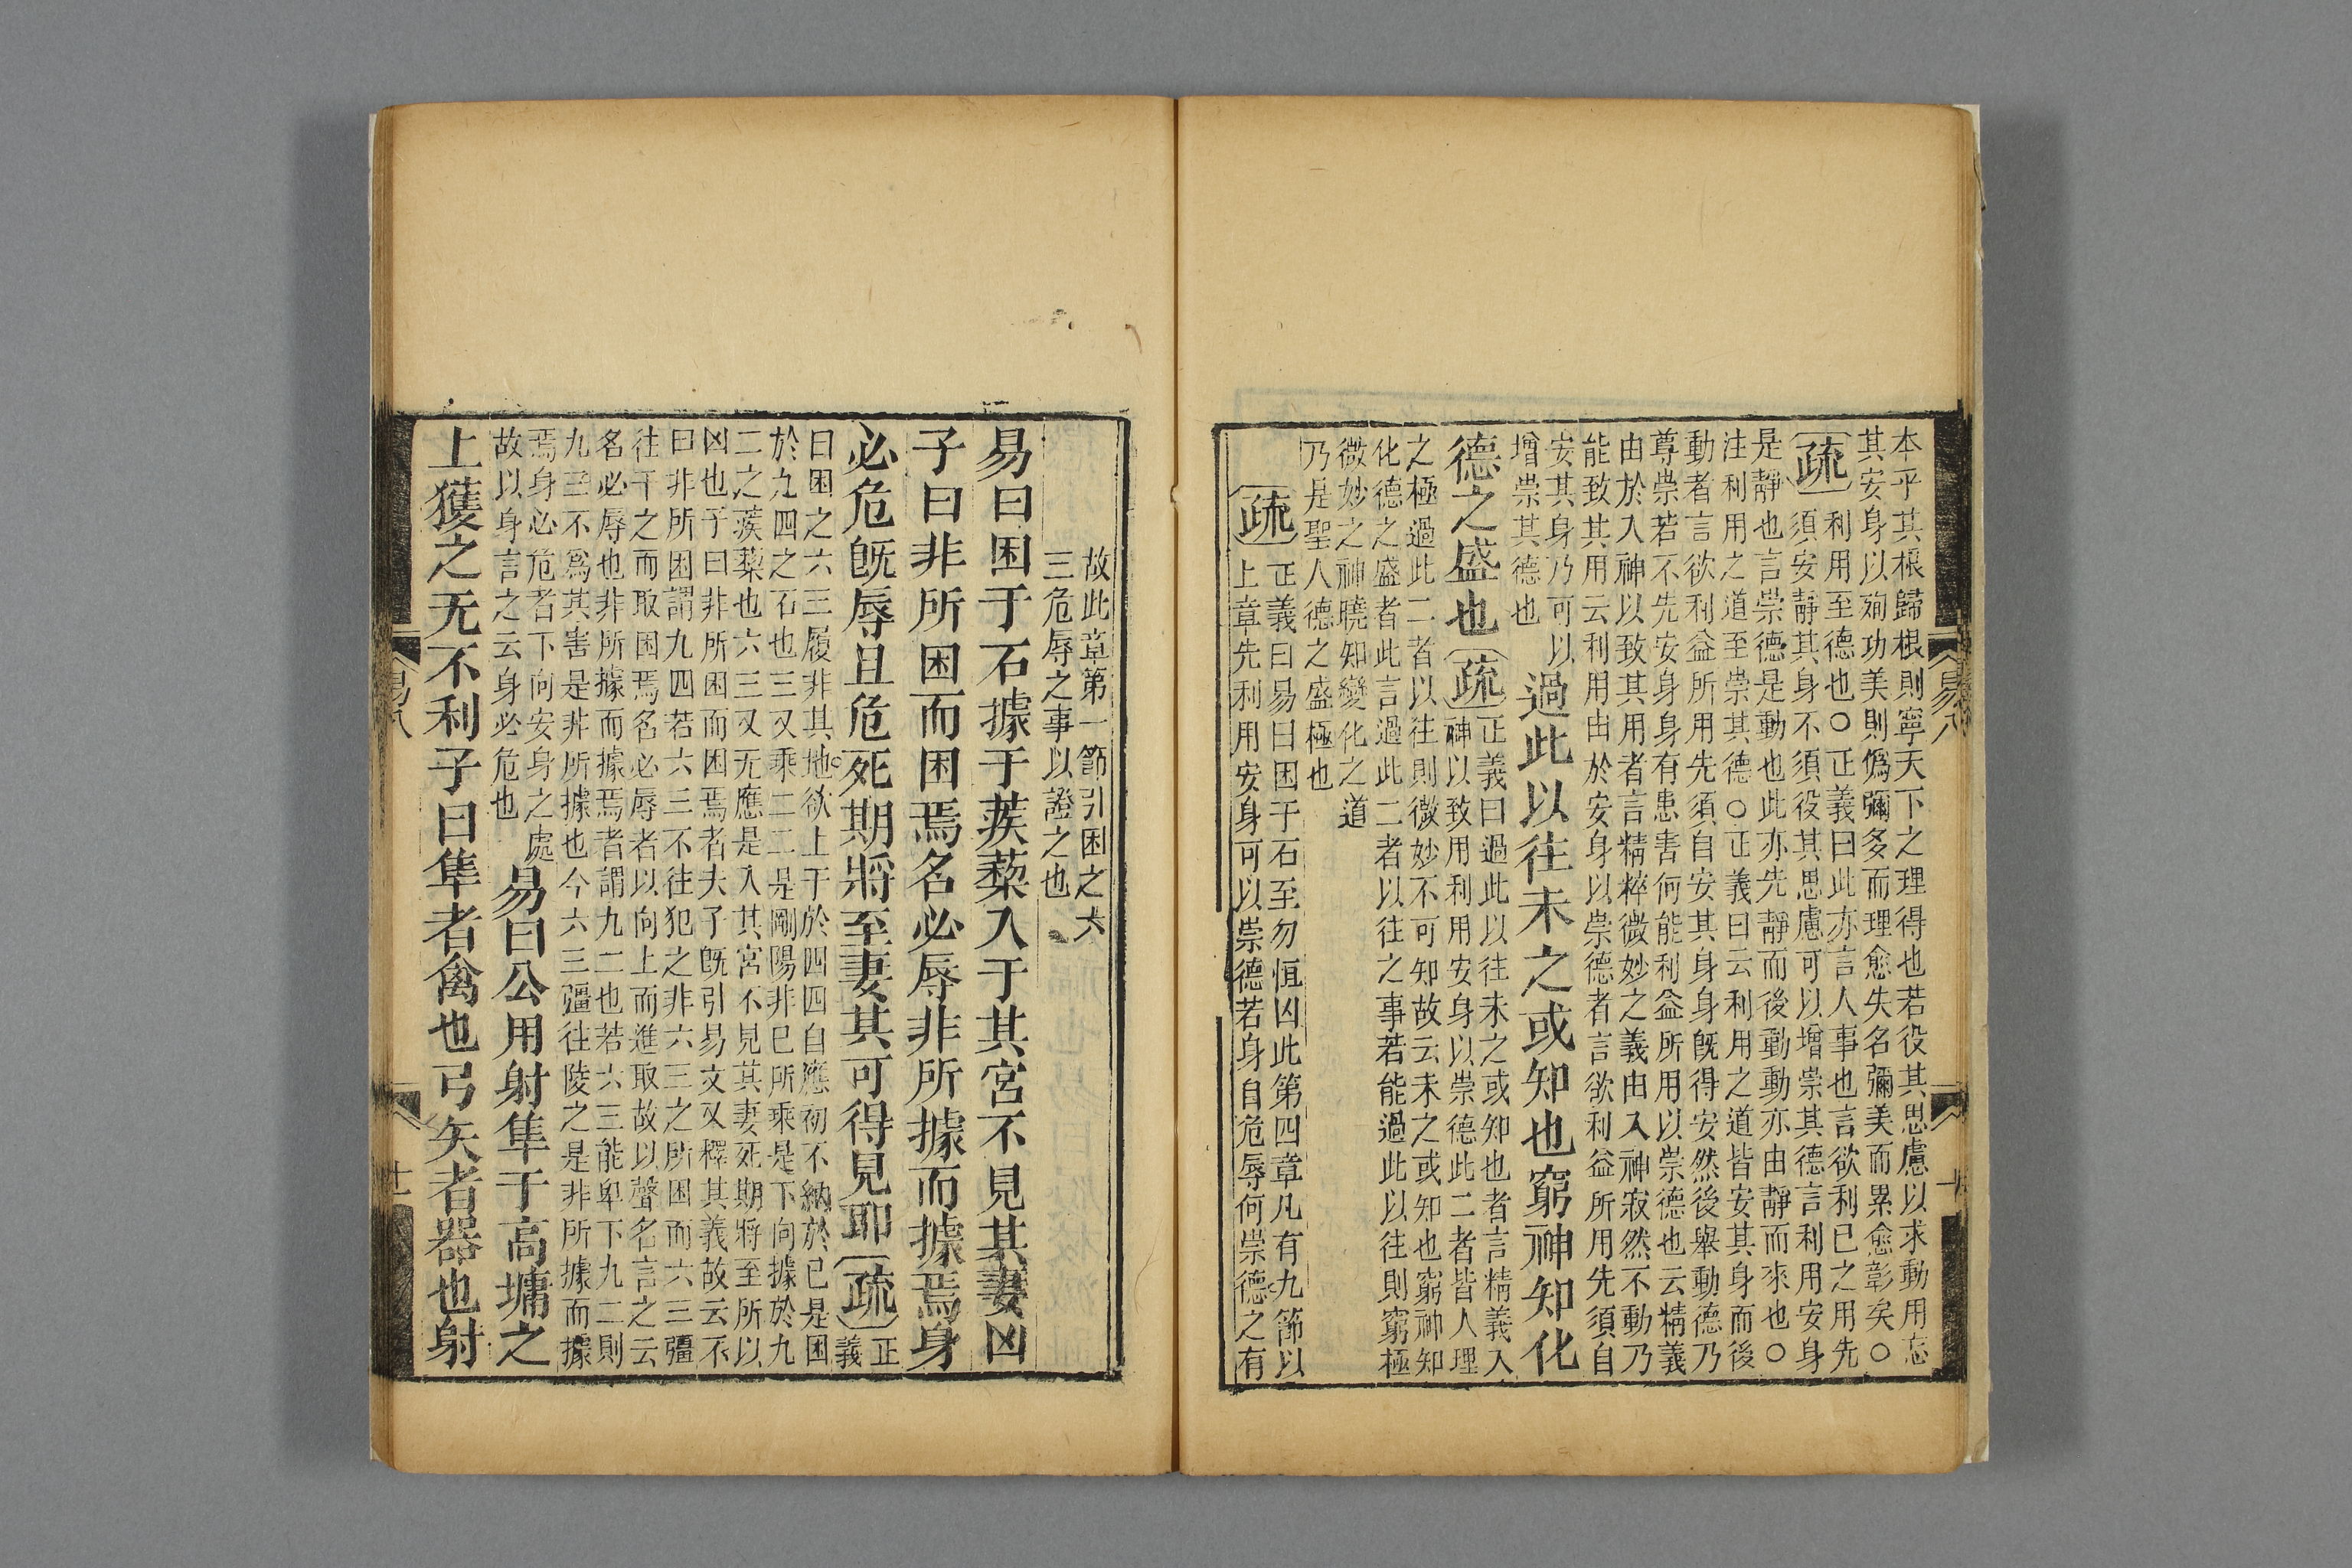 本乎其根歸根則寧天下之理得也若役其思慮以求動用忘
其安身以殉功美則僞彌多而理愈失名彌美而累愈彰矣○
疏
利用至德也○正義曰此亦言人事也言欲利已之用先
須安靜其身不須役其思慮可以增崇其德言利用安身
是靜也言崇德是動也此亦先靜而後動動亦由靜而來也○
注利用之道至崇其德○正義曰云利用之道皆安其身而後
動者言欲利益所用先須自安其身身旣得安然後舉動德乃
尊崇若不先安身身有患害何能利益所用以崇德也云精義
由於入神以致其用者言精粹微妙之義由入神寂然不動乃
能致其用云利用由於安身以崇德者言欲利益所用先須自
安其身乃可以
增崇其德也
過此以往未之或知也窮神知化
德之盛也疏
正義曰過此以往未之或知也者言精義入
神以致用利用安身以崇德此二者皆人理
之極過此二者以往則微妙不可知故云未之或知也窮神知
化德之盛者此言過此二者以往之事若能過此以往則窮極
微妙之神曉知變化之道
乃是聖人德之盛極也
疏
正義曰易曰困于石至勿恒凶此第四章凡有九節以
上章先利用安身可以崇德若身自危辱何崇德之有
易八
故此章第一節引困之六
三危辱之事以證之也
易曰困于石據于蒺蔾入于其宮不見其妻凶
子曰非所困而困焉名必辱非所據而據焉身
必危旣辱且危死期將至妻其可得見耶疏
正
義
曰困之六三履非其地欲上于於四四自應初不納於已是困
於九四之石也三又乘二二是剛陽非已所乘是下向據於九
二之蒺蔾也六三又无應是入其宮不見其妻死期將至所以
凶也子曰非所困而困焉者夫子旣引易文又釋其義故云不
曰非所困謂九四若六三不往犯之非六三之所困而六三彊
往干之而取困焉名必辱者以向上而進取故以聲名言之云
名必辱也非所據而據焉者謂九二也若六三能卑下九二則
九三不爲其害是非所據也今六三彊往陵之是非所據而據
焉身必危者下向安身之處
故以身言之云身必危也
易曰公用射隼于高墉之
上獲之无不利子曰隼者禽也弓矢者器也射
易八
十一